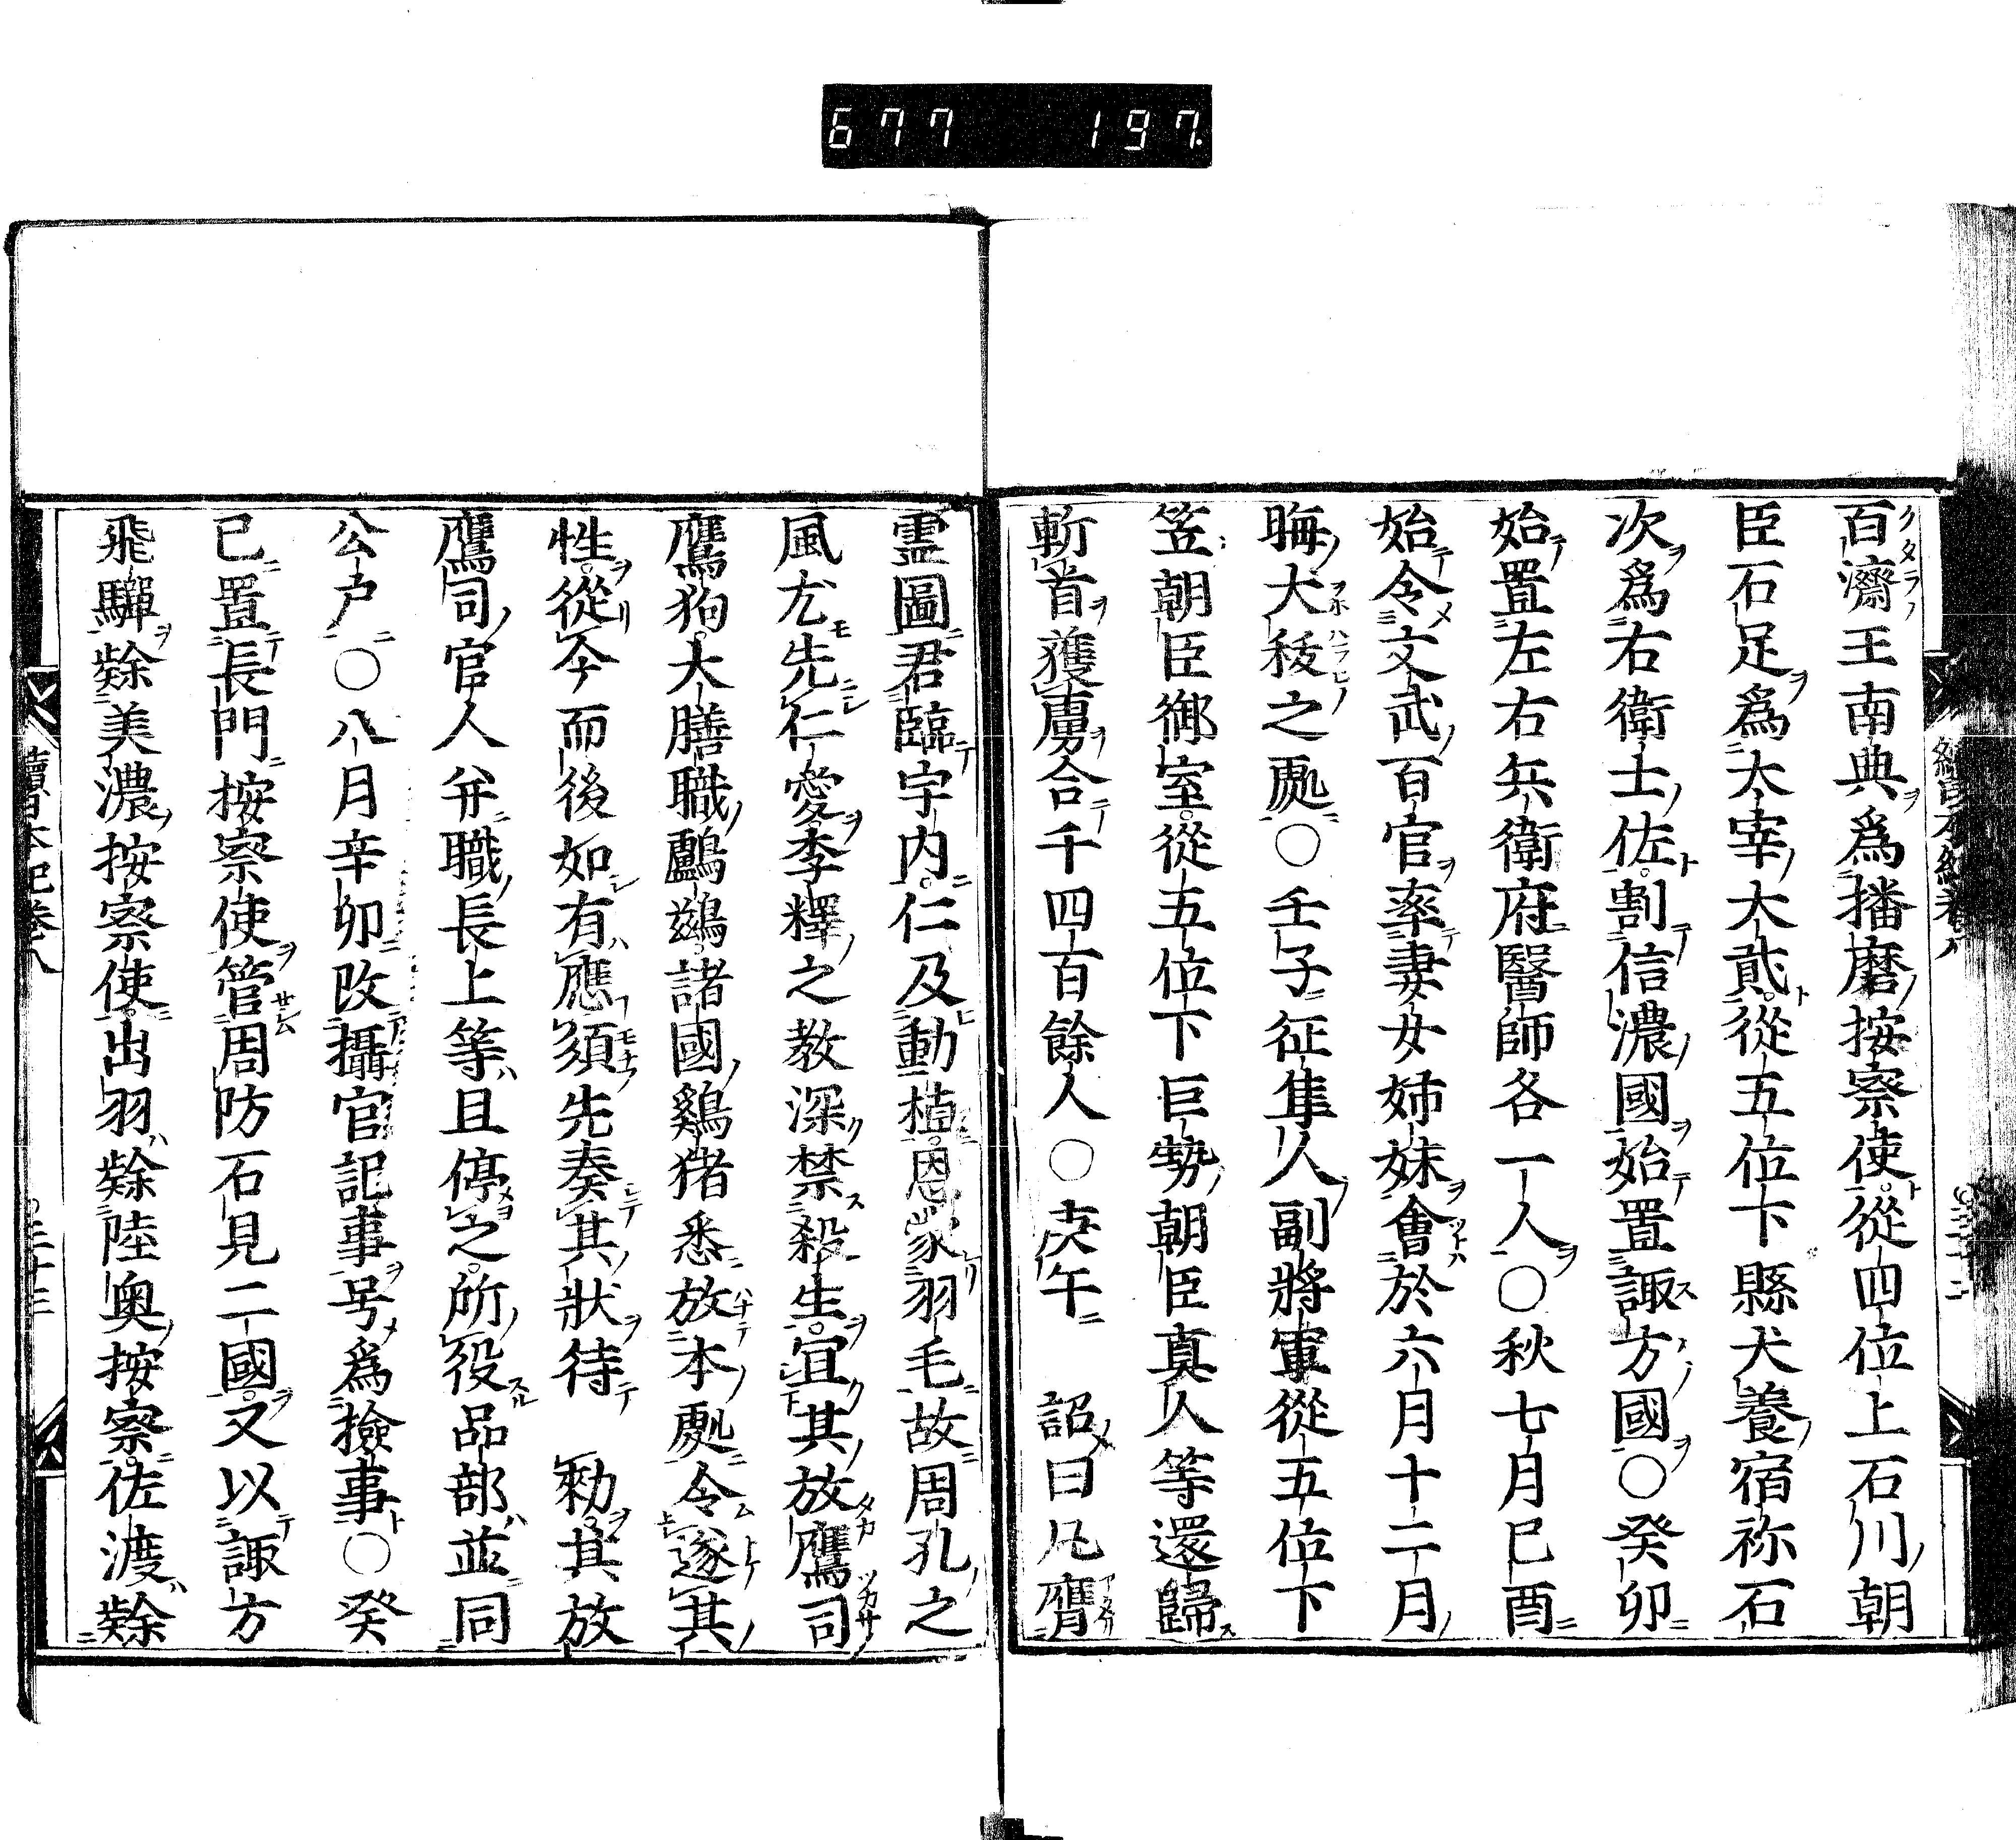 677 197.
百濟王南典爲播磨按察使從四位上石川朝
臣石足爲太宰大貳從五位下縣犬養宿祢石
次爲右衛士佐割信濃國始置諏方國○癸卯
始置左右兵衛府醫師各一人○秋七月巳酉
始令文武百官率妻女姉妹會於六月十二月
晦大秡之䖏○壬子征隼人副將軍從五位下
笠朝臣御室從五位下巨勢朝臣真人等還歸
斬首獲虜合千四百餘人○庚午 詔曰凡膺
霊圖君臨宇内仁及動植恩蒙羽毛故周孔之
風尤先仁愛李釋之教深禁殺生宜其放鷹司
鷹狗大膳職鸕鷀諸國鷄猪悉放本䖏令遂其
性從今而後如有應須先奏其狀待 勑其放
鷹司官人并職長上等且停之所役品部並同
公户○八月辛卯改攝官記事号爲撿事○癸
巳置長門按察使管周防石見二國又以諏方
飛驒𣣌美濃按察使出羽𣣌陸奥按察佐渡𣣌
續日本紀卷八
三十三